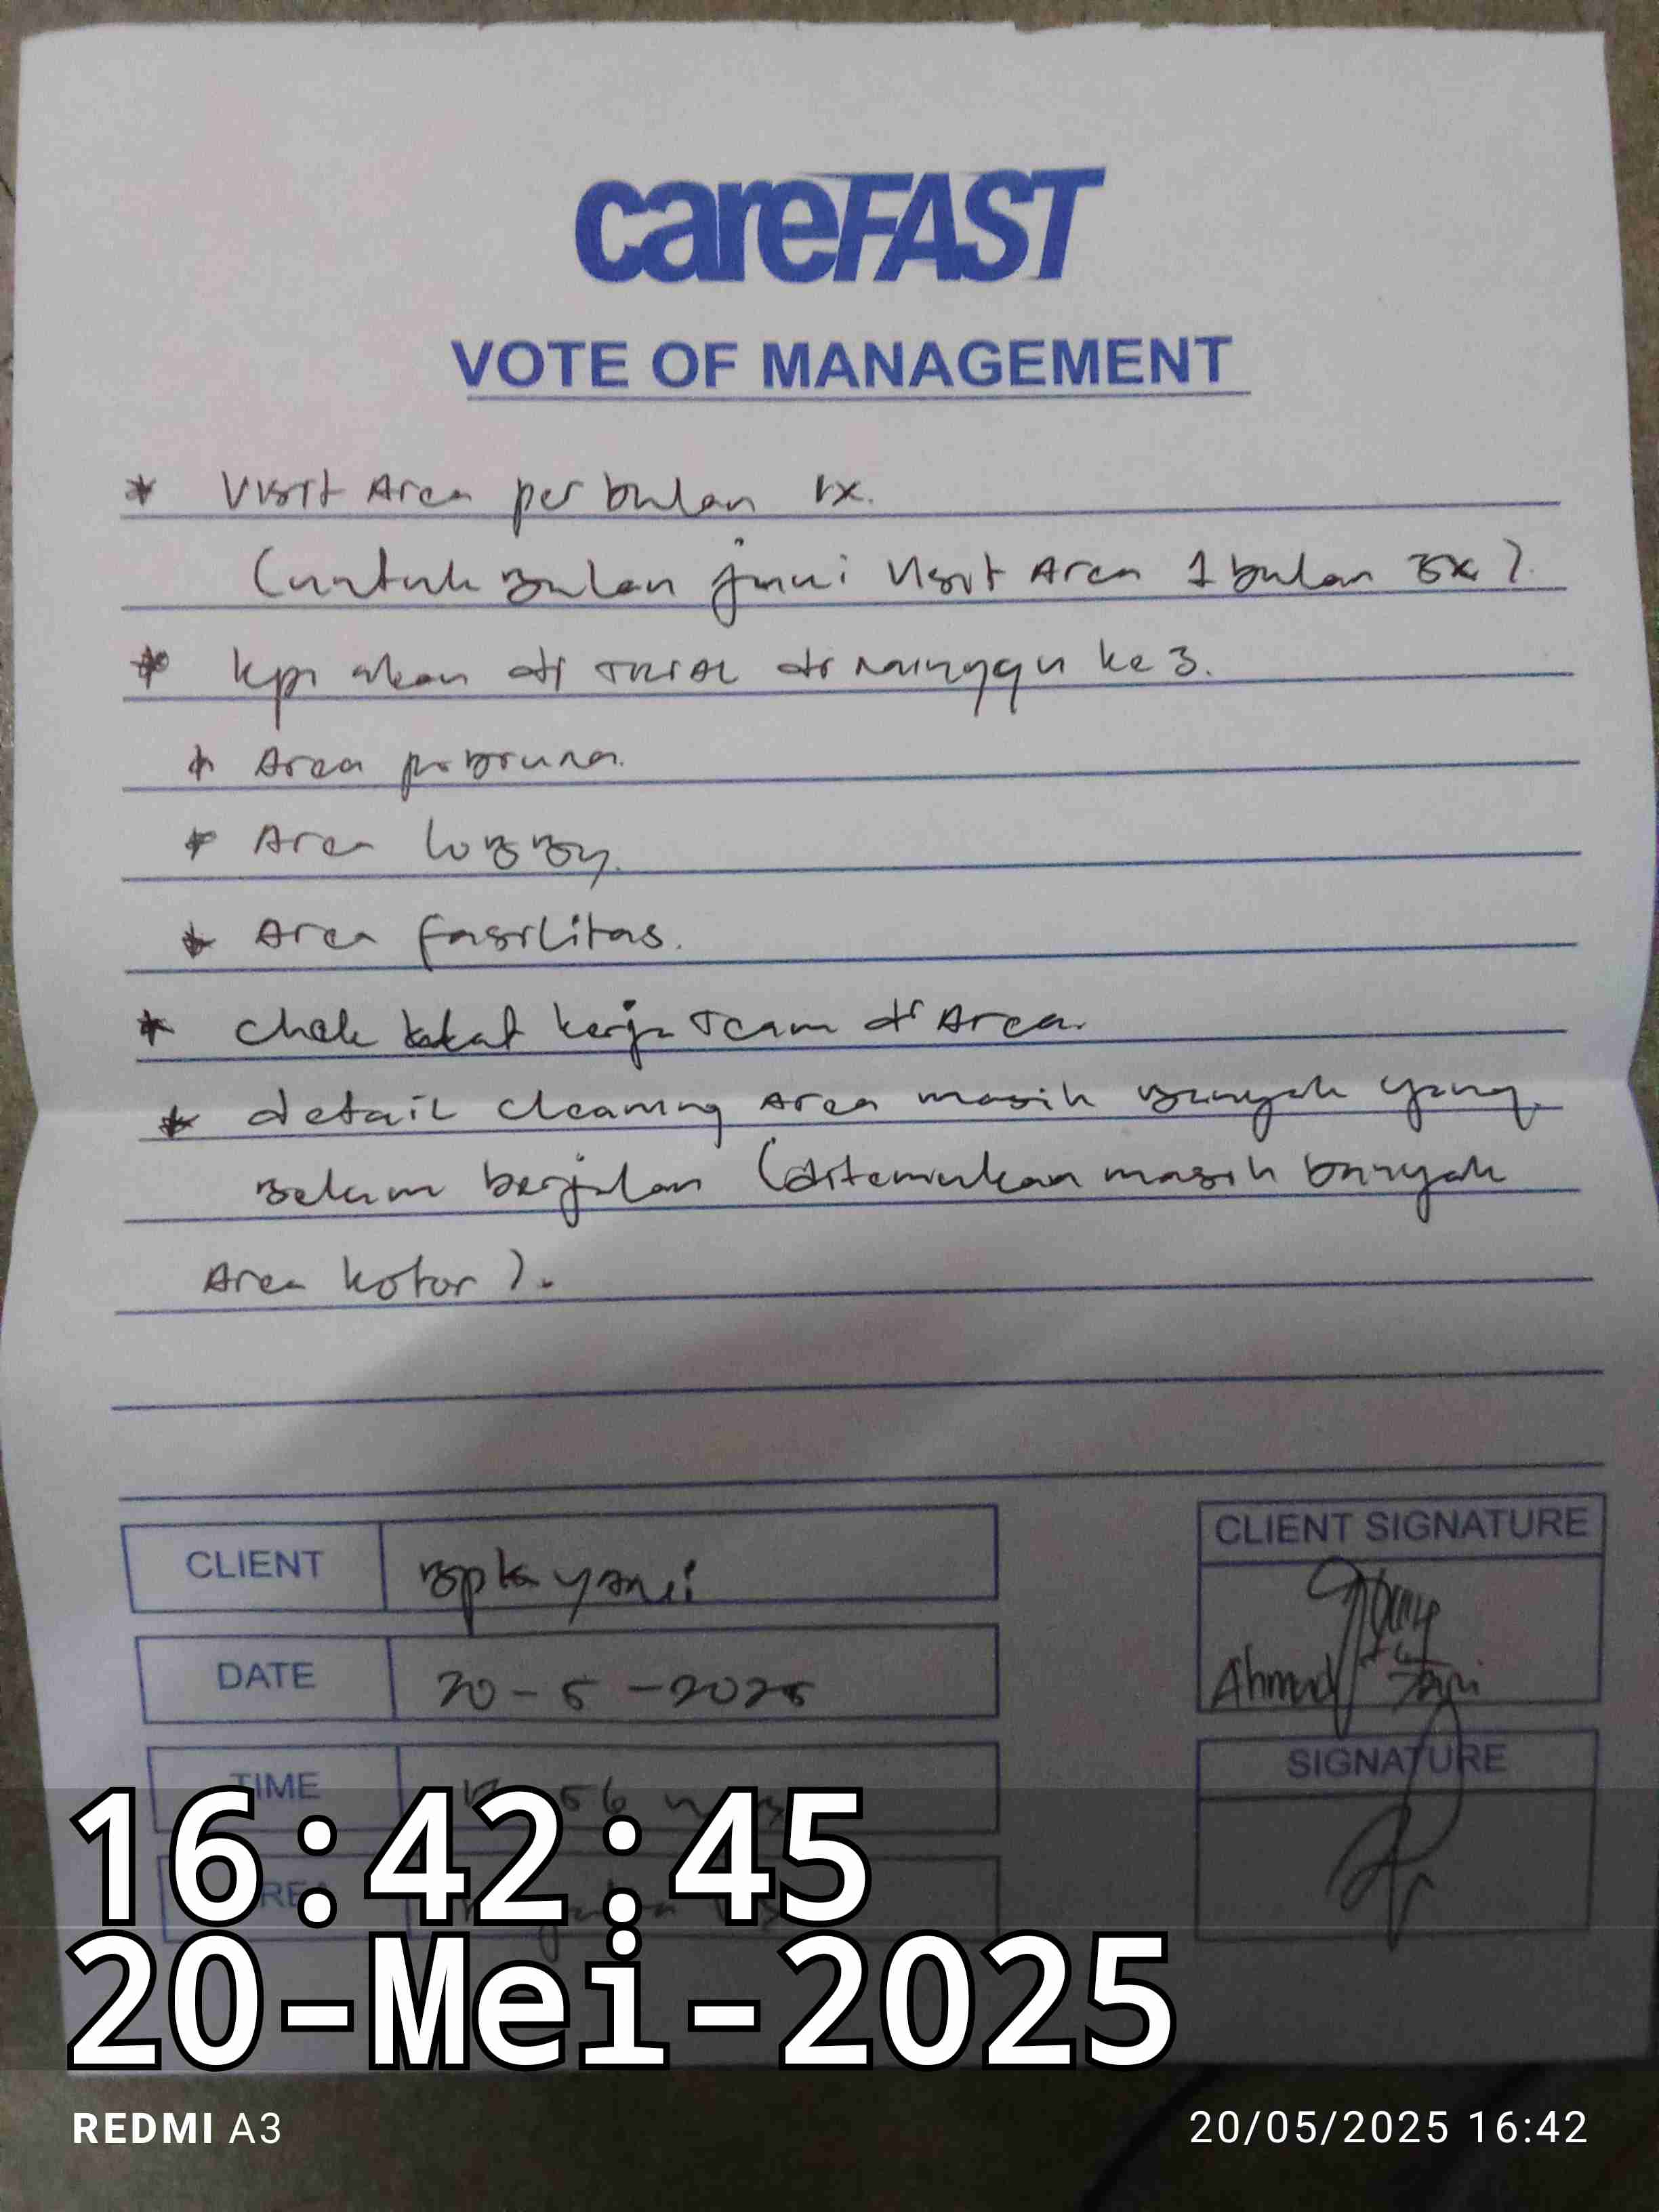 careFAST
VOTE OF MANAGEMENT
* Visit Area per bulan 1x.
(untuk Bulan juni Visit Area 1 bulan 3x).
* kpi akan di TRIAL di minggu ke 3.
* Area
* Area loBBy.
* Area fasilitas.
* Chek kerja Team di Area.
* detail cleaning Area masih Banyak yang
Belum berjalan (ditemukan masih banyak
Area kotor).
CLIENT Bpk yani
CLIENT SIGNATURE
Ahmad Yani
DATE 20-5-2025
TIME
SIGNATURE
AREA
16:42:45
20-Mei-2025
REDMI A3
20/05/2025 16:42